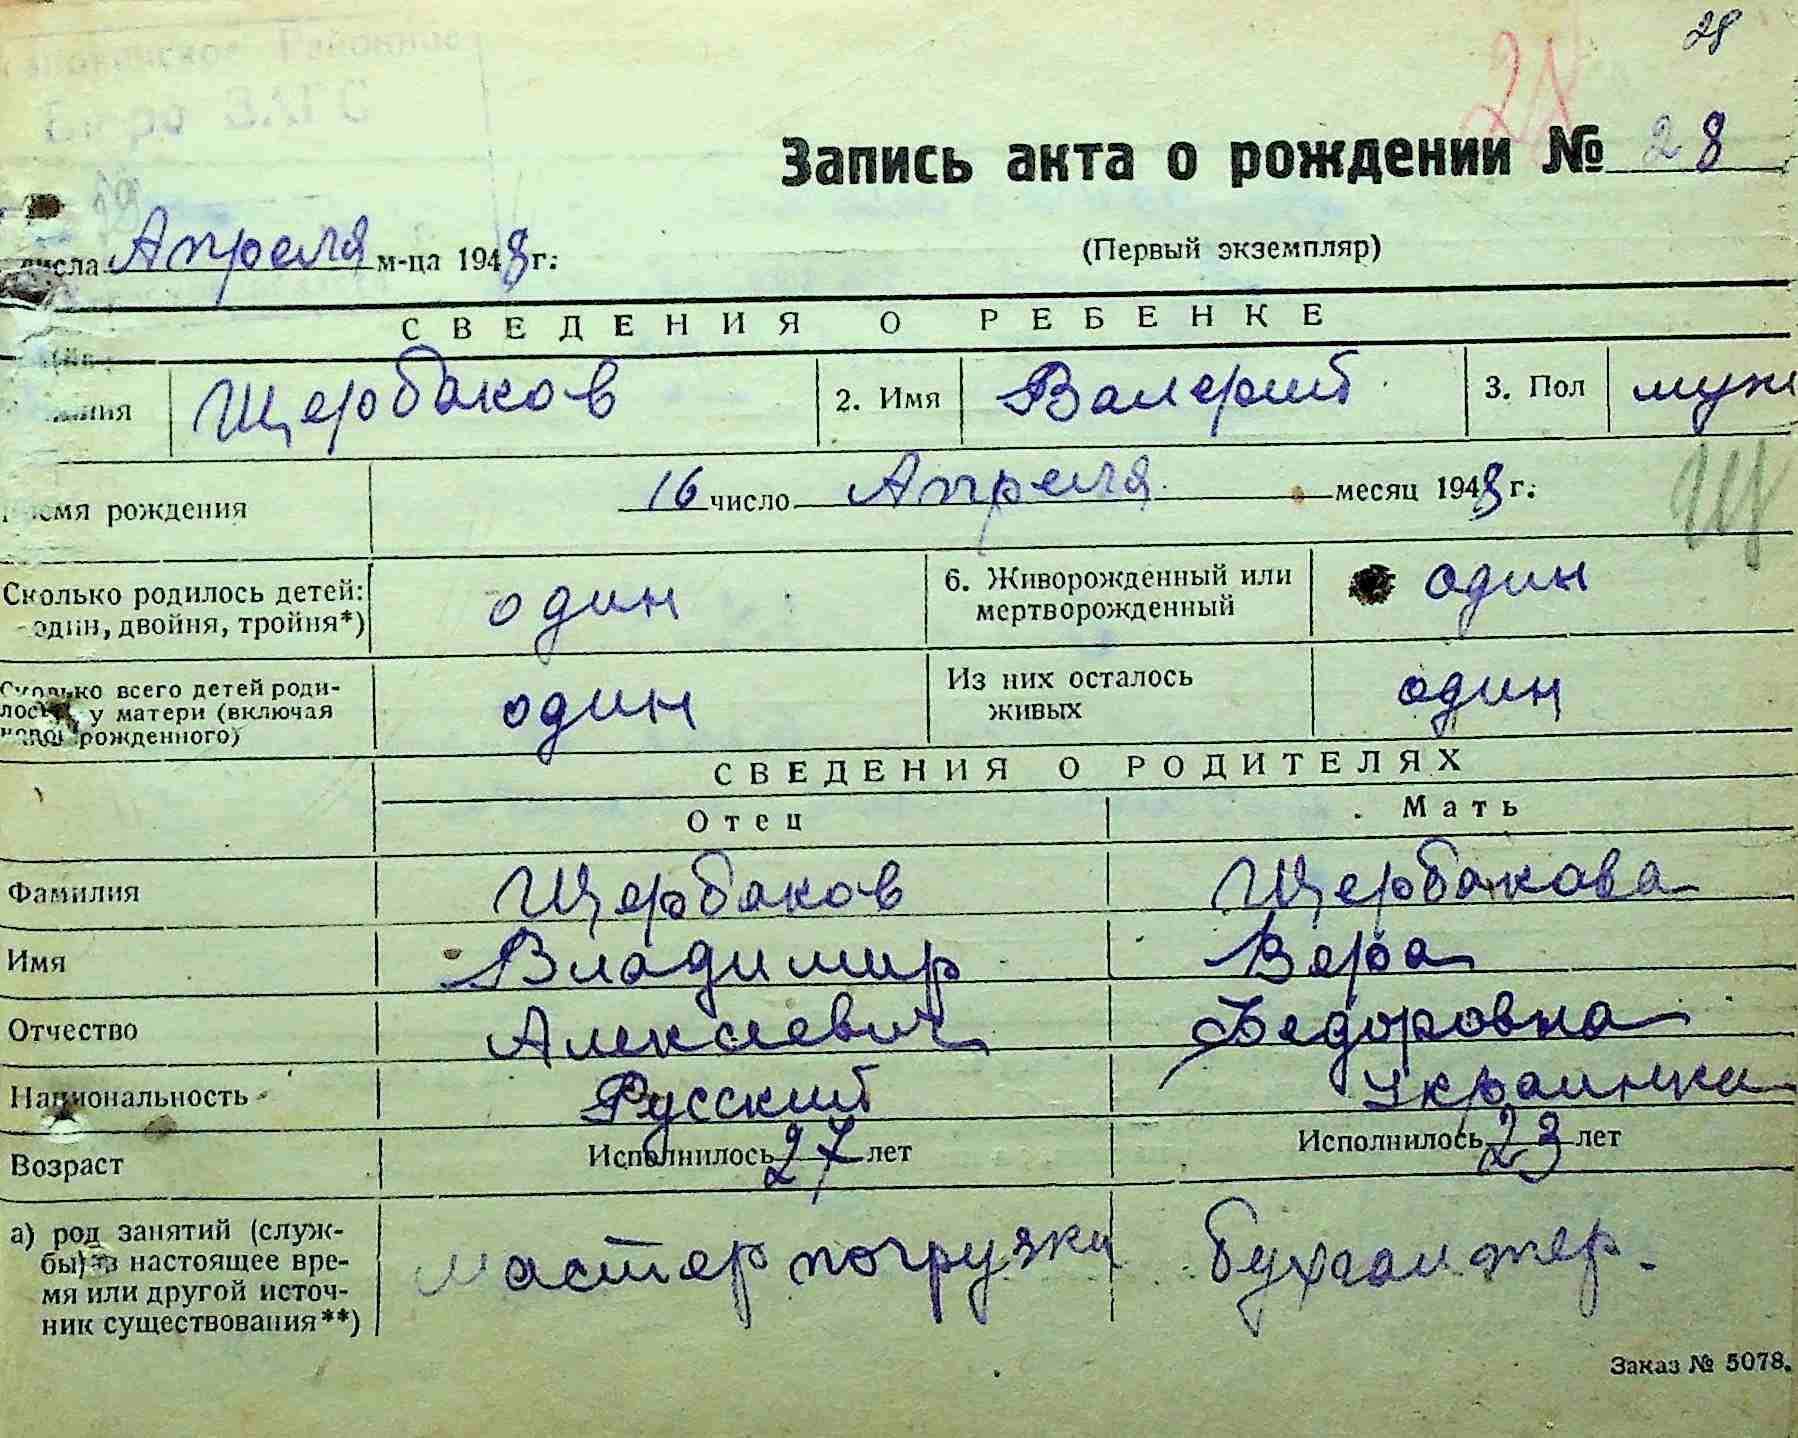 28
28
Районное
Бюро ЗАГС
Запись акта о рождении № 28
19
числа Апреля м-ца 1948 г.
(Первый экземпляр)
СВЕДЕНИЯ О РЕБЕНКЕ
Щербаков 2. Имя Валерий 3. Пол муж
Время рождения 16 число Апреля месяц 1948 г.
Щ
Сколько родилось детей: один 6. Живорожденный или один
один, двойня, тройня*) мертворожденный
Сколько всего детей роди- один Из них осталось один
лось у матери (включая живых
рожденного)
СВЕДЕНИЯ О РОДИТЕЛЯХ
Отец Мать
Фамилия Щербаков Щербакова
Имя Владимир Вера
Отчество Алексеевич Федоровна
Национальность Русский Украинка
Возраст Исполнилось 27 лет Исполнилось 23 лет
а) род занятий (служ- мастер погрузки бухгалтер.
бы) в настоящее вре-
мя или другой источ-
ник существования**)
Заказ № 5078.